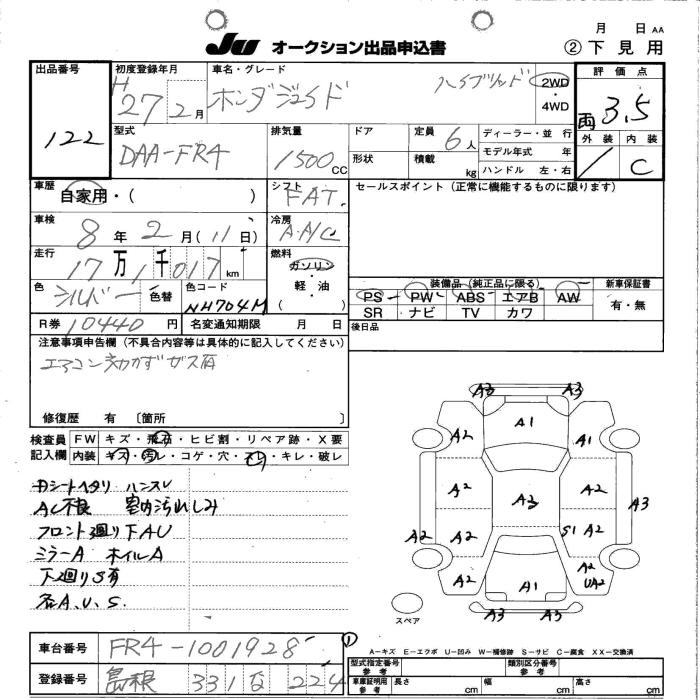 Ju オークション出品申込書
月 日 AA
② 下見用
出品番号 122
初度登録年月 H 27 2月
車名・グレード ホンダジェイド ハイブリッド
2WD ・ 4WD
評価点 両 3.5
外装 内装 C
型式 DAA-FR4
排気量 1500 CC
ドア
形状
定員 6 人
積載 kg
ディーラー・並行
モデル年式 年
ハンドル 左・右
車歴 自家用・( )
シフト FAT.
セールスポイント(正常に機能するものに限ります)
車検 8年 2月(11日)
冷房 A.A/C
走行 17万1千017km
燃料 ガソリン・軽油 ( )
色 シルバー 色替
色コード NH704M
装備品(純正品に限る) 新車保証書
PS PW ABS エアB AW 有・無
SR ナビ TV カワ
R券 10440円 名変通知期限 月 日
後日品
注意事項申告欄(不具合内容等は具体的に記入してください)
エアコン効かずガス有
修復歴 有 〔箇所 〕
検査員記入欄
FW キズ・飛石・ヒビ割・リペア跡・X要
内装 キズ・汚レ・コゲ・穴・スレ・キレ・破レ
シートヘタリ ハンスレ
AC不良 室内汚れしみ
フロント廻り下AU
ミラーA ホイルA
下廻りS有
各A.U.S.
A3 A3
A1
A2 A1
A2 A3 A2 A3
A2 A2 S1 A2
A2 A1 A2 UA2
A3 A3
スペア
車台番号 FR4-1001928
①
A-キズ E-エクボ U-凹み W-補修跡 S-サビ C-腐食 XX-交換済
型式指定番号 参考 類別区分番号 参考
登録番号 島根 331 224
車庫証明用 参考 長さ cm 幅 cm 高さ cm